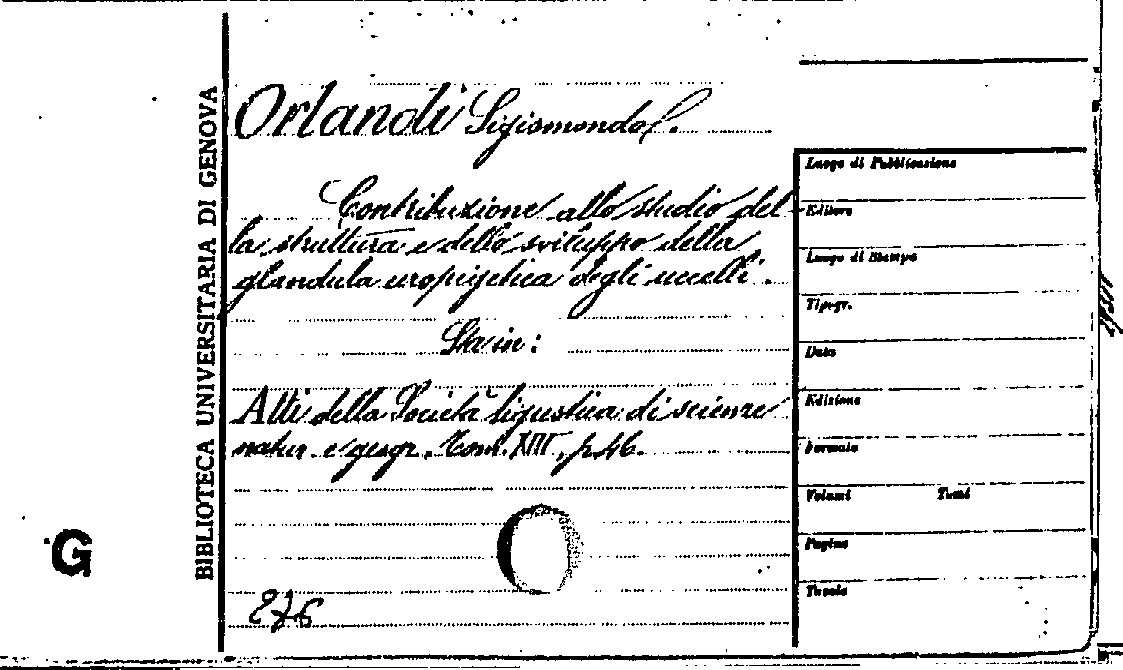 BIBLIOTECA UNIVERSITARIA DI GENOVA
Orlandi Sigismondo.
Contribuzione allo studio del-
la struttura e dello sviluppo della
glandula uropigetica degli uccelli.
Sta in:
Atti della Società ligustica di scienze
natur. e geogr. Tom. XIII, p.
G
Luogo di Pubblicazione
Editore
Luogo di Stampa
Tipogr.
Data
Edizione
Formato
Volumi Tomi
Pagine
Tavole